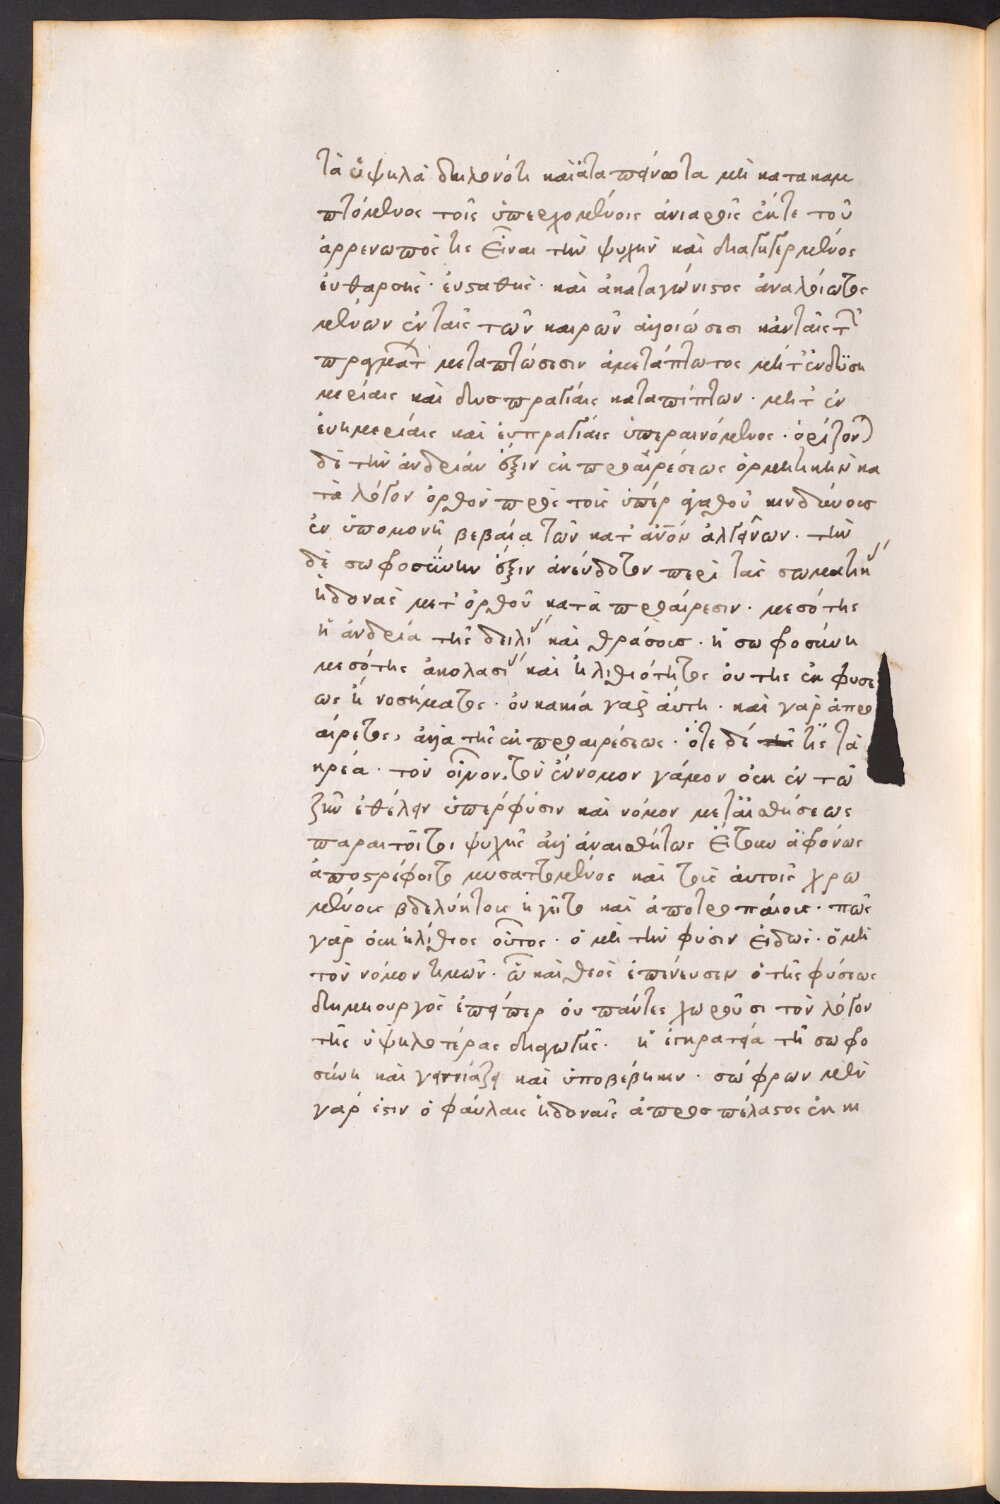 τὰ ὑψηλὰ δηλονότι καὶ τὰ ταπεινὰ μὴ κατακαμ
πτόμενος τοῖς ὑπερχομένοις ἀνιαροῖς ἔκ τε τοῦ
ἀρρενωπός τις εἶναι τὴν ψυχὴν καὶ διαγηγερμένος
εὐθαρσὴς · εὐσταθὴς · καὶ ἀκαταγώνιστος ἀναλλοίωτος
μένων ἐν ταῖς τῶν καιρῶν ἀλλοιώσεσι κἀν ταῖς τ
πραγμάτ μεταπτώσεσιν ἀμετάπτωτος μήτ' ἐν δυση
μερίαις καὶ δυσπραγίαις καταπίπτων · μήτ' ἐν
εὐημερίαις καὶ εὐπραγίαις ὑπεραινόμενος · ὁρίζον
δὲ τὴν ἀνδρίαν ἕξιν ἐκ προαιρέσεως ὁρμητικὴν κα
τὰ λόγον ὀρθὸν πρὸς τοὺς ὑπὲρ ἀγαθοῦ κινδύνους
ἐν ὑπομονῇ βεβαία τῶν κατ' αὐτὸν ἀλγεινῶν · τὴν
δὲ σωφροσύνην ἕξιν ἀνένδοτον περὶ τὰς σωματικ
ἡδονὰς μετ' ὀρθοῦ κατὰ προαίρεσιν · μεσότης
ἡ ἀνδρία τῆς δειλί καὶ θράσους · ἡ σωφροσύνη
μεσότης ἀκολασί καὶ ἠλιθιότητος οὐ τῆς ἐκ φύσε
ως ἢ νοσήματος · οὐ κακία γὰρ αὕτη · καὶ γὰρ ἀπρο
αίρετος, ἀλλὰ τῆς ἐκ προαιρέσεως · ὅτε δέ τις τὰ
κρέα · τὸν οἶνον, τὸν ἔννομον γάμον οὐκ ἐν τῶ
ζῆν ἐθέλειν ὑπὲρ φύσιν καὶ νόμον μετ' αἰσθήσεως
παραιτοῖτο, ψυχῆς ἀλλ' ἀναισθήτως ἔτι κἀφρόνως
ἀποστρέφοιτο μυσαττόμενος καὶ τοῖς αὐτοῖς χρω
μένους βδελυκτοὺς ἡγεῖτο καὶ ἀποτροπαίους · πῶς
γὰρ οὐκ ἠλίθιος οὗτος · ὁ μὴ τὴν φύσιν εἰδώς · ὁ μὴ
τὸν νόμον τιμῶν · ᾧ καὶ θεὸς ἐπένευσεν ὁ τῆς φύσεως
δημιουργὸς ἐπείπερ οὐ πάντες χωροῦσι τὸν λόγον
τῆς ὑψηλοτέρας διαγωγῆς · ἡ ἐγκράτεια τῇ σωφρο
σύνη καὶ γειτνιάζει καὶ ὑποβέβηκεν · σώφρων μὲν
γάρ ἐστιν ὁ φαύλαις ἡδοναῖς ἀπροσπέλαστος ἐκ νι